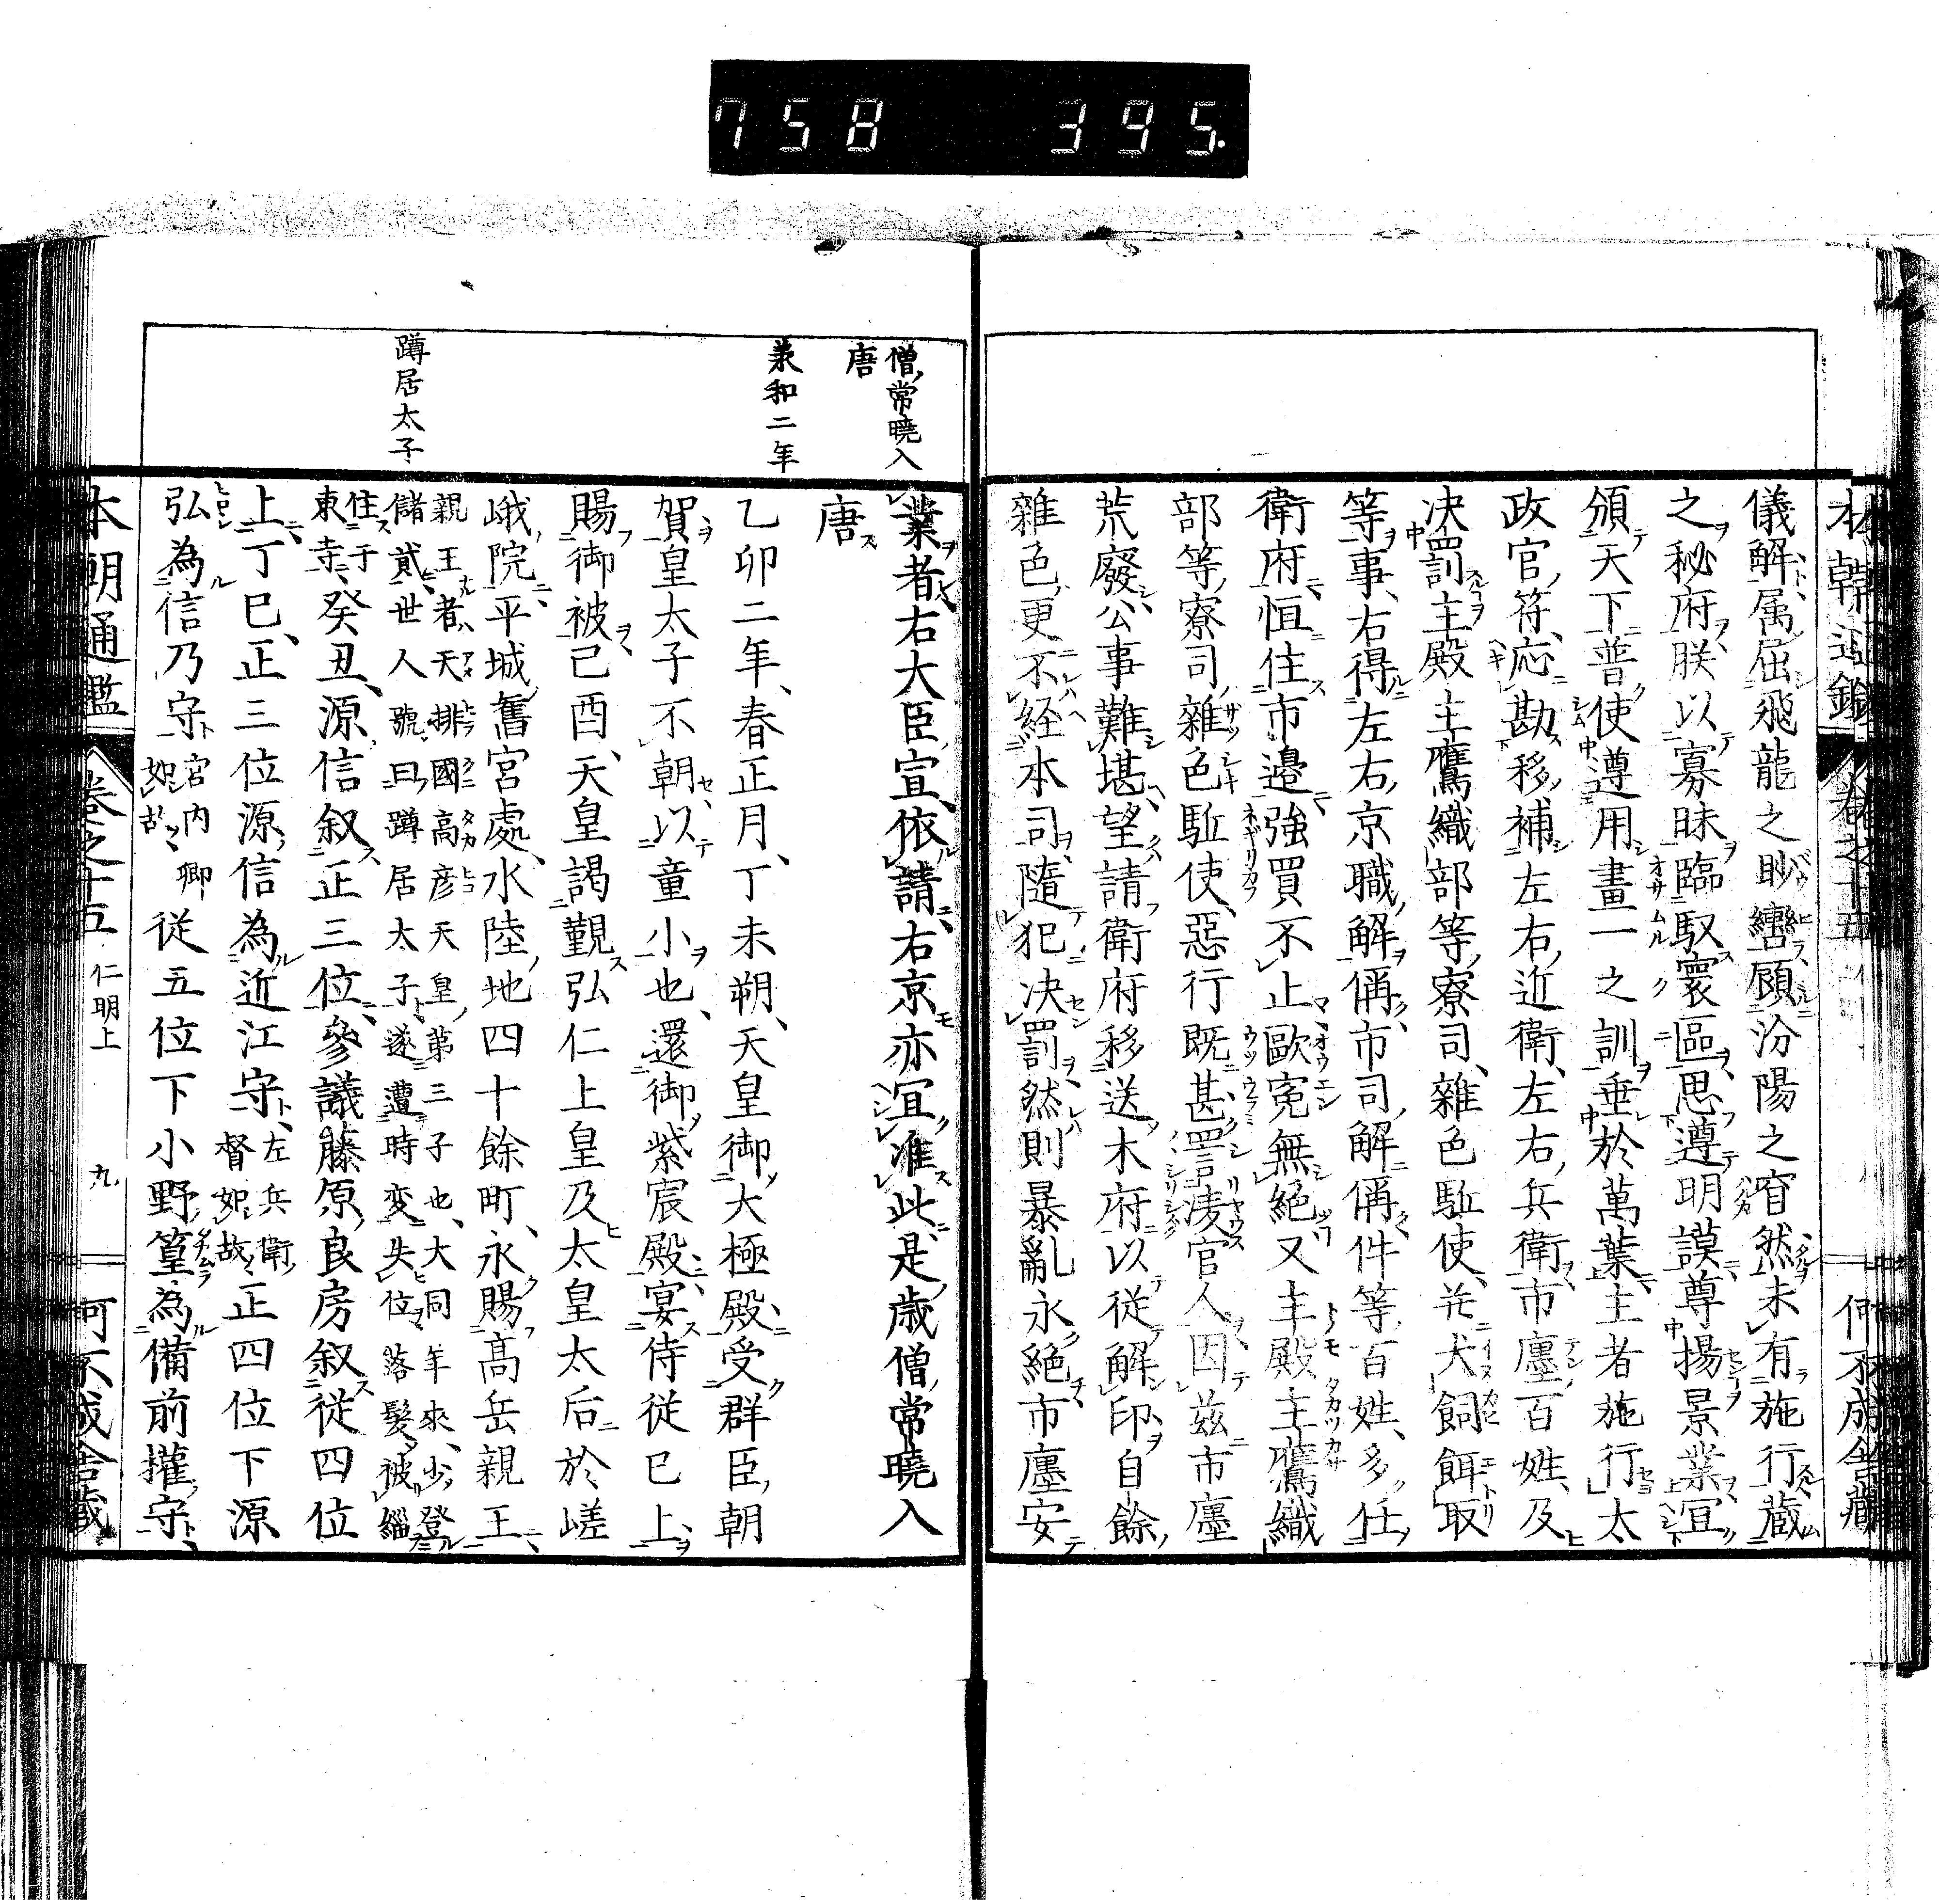 758 395.
儀解属屈飛龍之眇轡顧汾陽之窅然未有施行蔵
之秘府朕以寡昧臨馭寰區思遵明謨尊揚景業冝
頒天下普使遵用畫一之訓垂於萬葉主者施行太
政官符応勘移補左右近衛左右兵衛市廛百姓及
決罰主殿主鷹織部等寮司雜色駈使并犬飼餌取
等事右得左右京職解偁市司解偁件等百姓多任
衛府恒住市邉強買不止歐寃無絕又主殿主鷹織
部等寮司雜色駈使惡行既甚詈凌官人因茲市廛
荒廢公事難堪望請衛府移送木府以從解印自餘
雜色更不経本司隨犯決罰然則暴亂永絕市廛安
僧常曉入
唐
業者右大臣宣依請右京亦冝准此是歳僧常曉入
唐
兼和二年
乙卯二年春正月丁未朔天皇御大極殿受群臣朝
賀皇太子不朝以童小也還御紫宸殿宴侍從已上
賜御被己酉天皇謁覲弘仁上皇及太皇太后於嵯
峨院平城舊宮處水陸地四十餘町永賜高岳親王
蹲居太子
親王者天排國高彦天皇第三子也大同年來少登
儲貳世人號曰蹲居太子遂遭時変失位落髮被緇
住于
東寺癸丑源信叙正三位參議藤原良房叙從四位
上丁巳正三位源信為近江守左兵衛
督如故正四位下源
弘為信乃守宮内卿
如古從五位下小野篁為備前權守
本朝通鑑 卷之十五 仁明上 九 何不成舎蔵